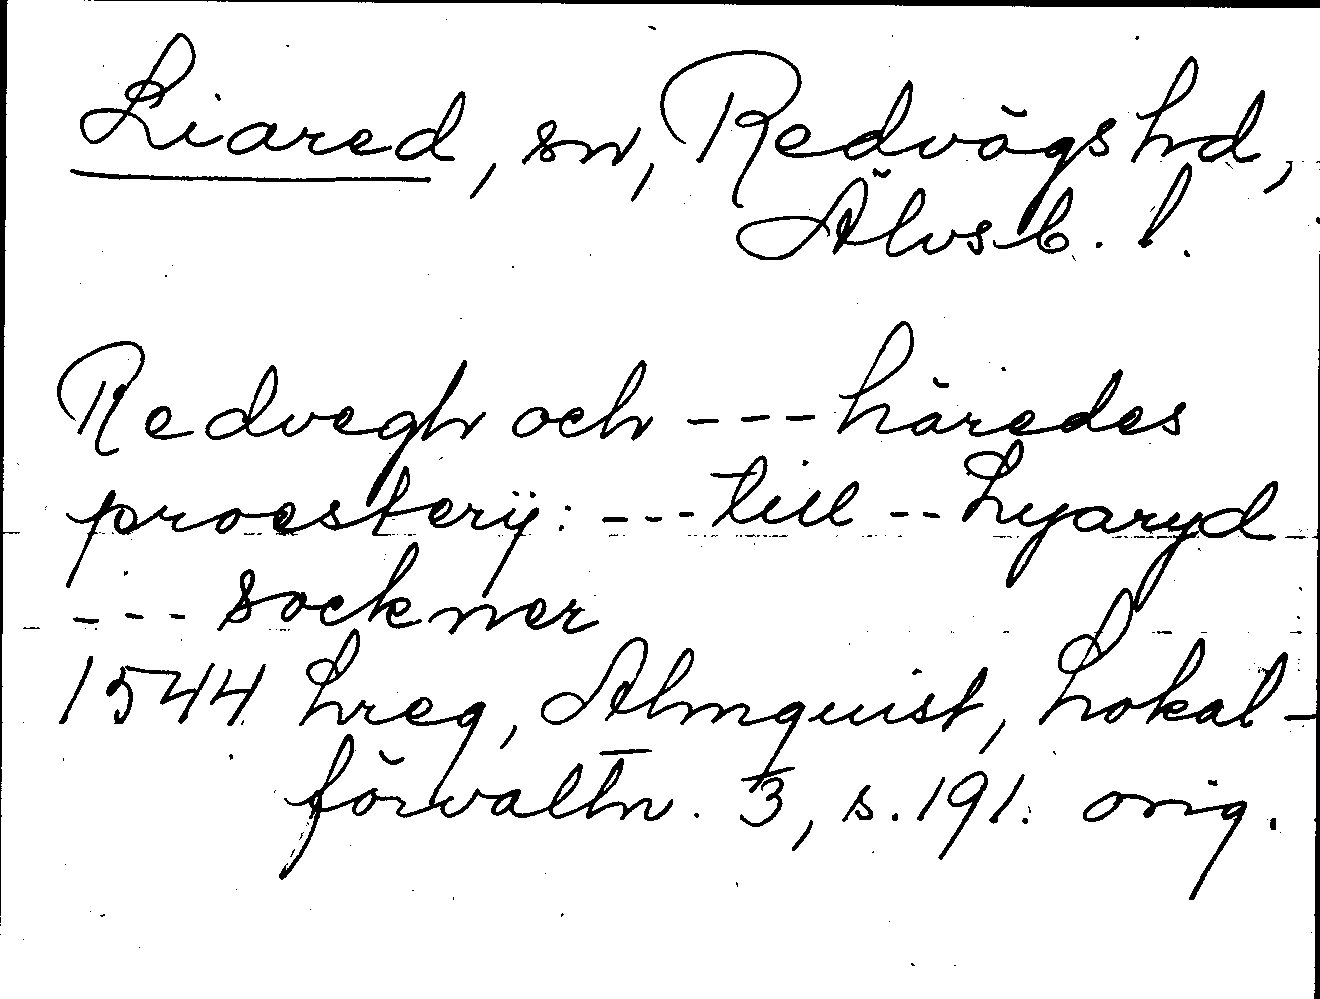 Liared, sn, Redvägs hd,
Älvsb. l.
Redvegh och --- häredes
proesterij: --- till -- Lyaryd
--- sockner
1544 Lreg, Almquist, Lokal-
förvaltn. 3, s. 191. orig.